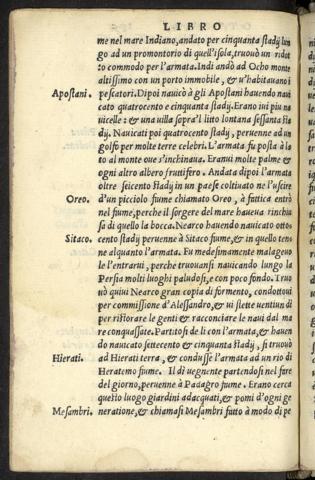 LIBRO
me nel mare Indiano, andato per cinquanta stadij lun
go ad un promontorio di quell'isola, truouò un ridot
to commodo per l'armata. Indi andò ad Ocho monte
altissimo con un porto immobile, & u'habitauano i
Apostani. pescatori. Dipoi nauicò à gli Apostani hauendo naui
cato quattrocento e cinquanta stadij. Erano iui piu na
uicelle: & una uilla sopra'l litto lontana sessanta sta
dij. Nauicati poi quatrocento stadij, peruenne ad un
golfo per molte terre celebri. L'armata fu posta à la
to al monte oue s'inchinaua. Eranui molte palme &
ogni altro albero fruttifero. Andata dipoi l'armata
oltre seicento stadij in un paese coltiuato ne l'uscire
Oreo. d'un picciolo fiume chiamato Oreo, à fattica entrò
nel fiume, perche il sorgere del mare haueua rinchiu
sa di quello la bocca. Nearco hauendo nauicato otto
Sitaco. cento stadij peruenne à Sitaco fiume, & in quello ten
ne alquanto l'armata. Fu medesimamente malageuo
le l'entrarui, perche truouansi nauicando lungo la
Persia molti luoghi paludosi, e con poco fondo. Truo
uò quiui Nearco gran copia di formento, condottoui
per commissione d'Alessandro, & ui stette uentiun dì
per ristorare le genti & racconciare le naui dal ma
re conquassate. Partitosi de lì con l'armata, & hauen
do nauicato settecento & cinquanta stadij, si truouò
Hierati. ad Hierati terra, & condusse l'armata ad un rio di
Heratemo fiume. Il dì uegnente partendosi nel fare
del giorno, peruenne à Padagro fiume. Erano cerca
questo luogo giardini adacquati, & pomi d'ogni ge
Mesambri. neratione, & chiamasi Mesambri fatto à modo di pe